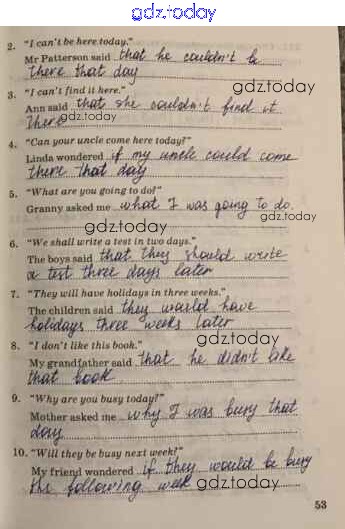 gdz.today
2. "I can't be here today."
Mr Patterson said that he couldn't be
there that day
gdz.today
3. "I can't find it here."
Ann said that she couldn't find it
there gdz.today
4. "Can your uncle come here today?"
Linda wondered if my uncle could come
there that day
gdz.today
5. "What are you going to do?"
Granny asked me what I was going to do.
gdz.today
gdz.today
6. "We shall write a test in two days."
The boys said that they should write
a test three days later
7. "They will have holidays in three weeks."
The children said they would have
holidays three weeks later
gdz.today
8. "I don't like this book."
My grandfather said that he didn't like
that book
gdz.today
9. "Why are you busy today?"
Mother asked me why I was busy that
day
10. "Will they be busy next week?"
My friend wondered if they would be busy
the following week gdz.today
53
gdz.today